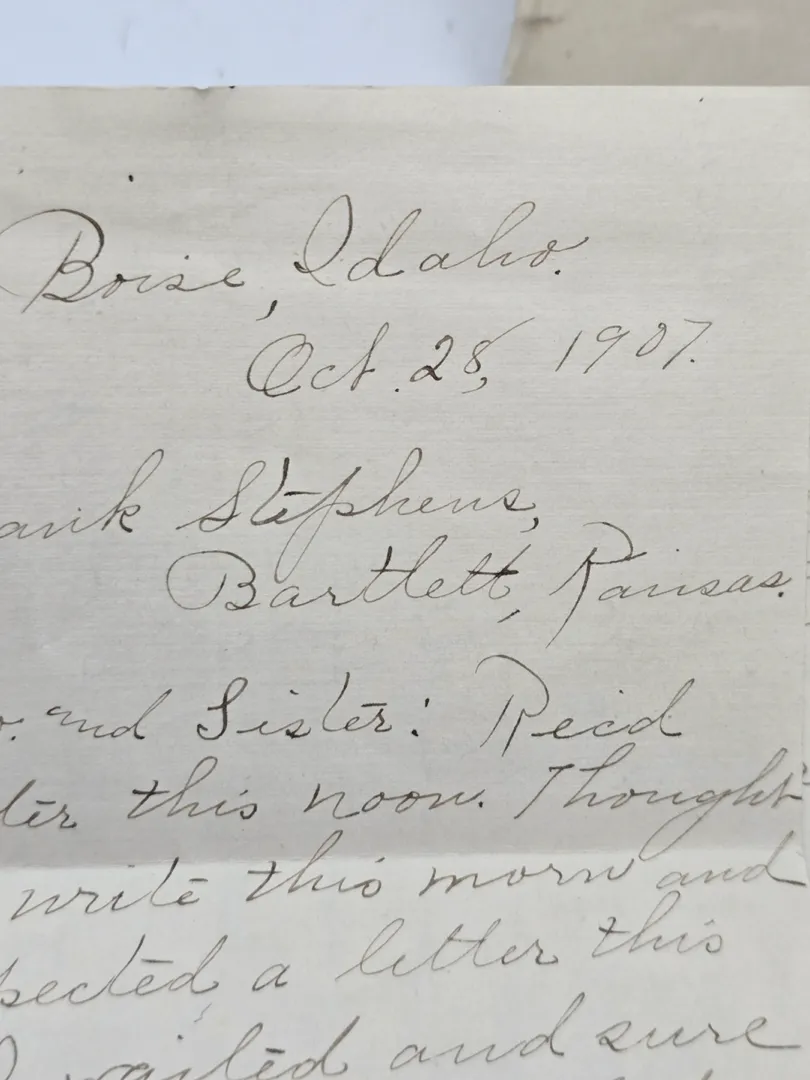 Boise, Idaho.
Oct. 28, 1907.
ank Stephens,
Bartlett, Kansas.
o. and Sister: Recd
ter this noon. Thought
write this morn and
pected a letter this
waited and sure